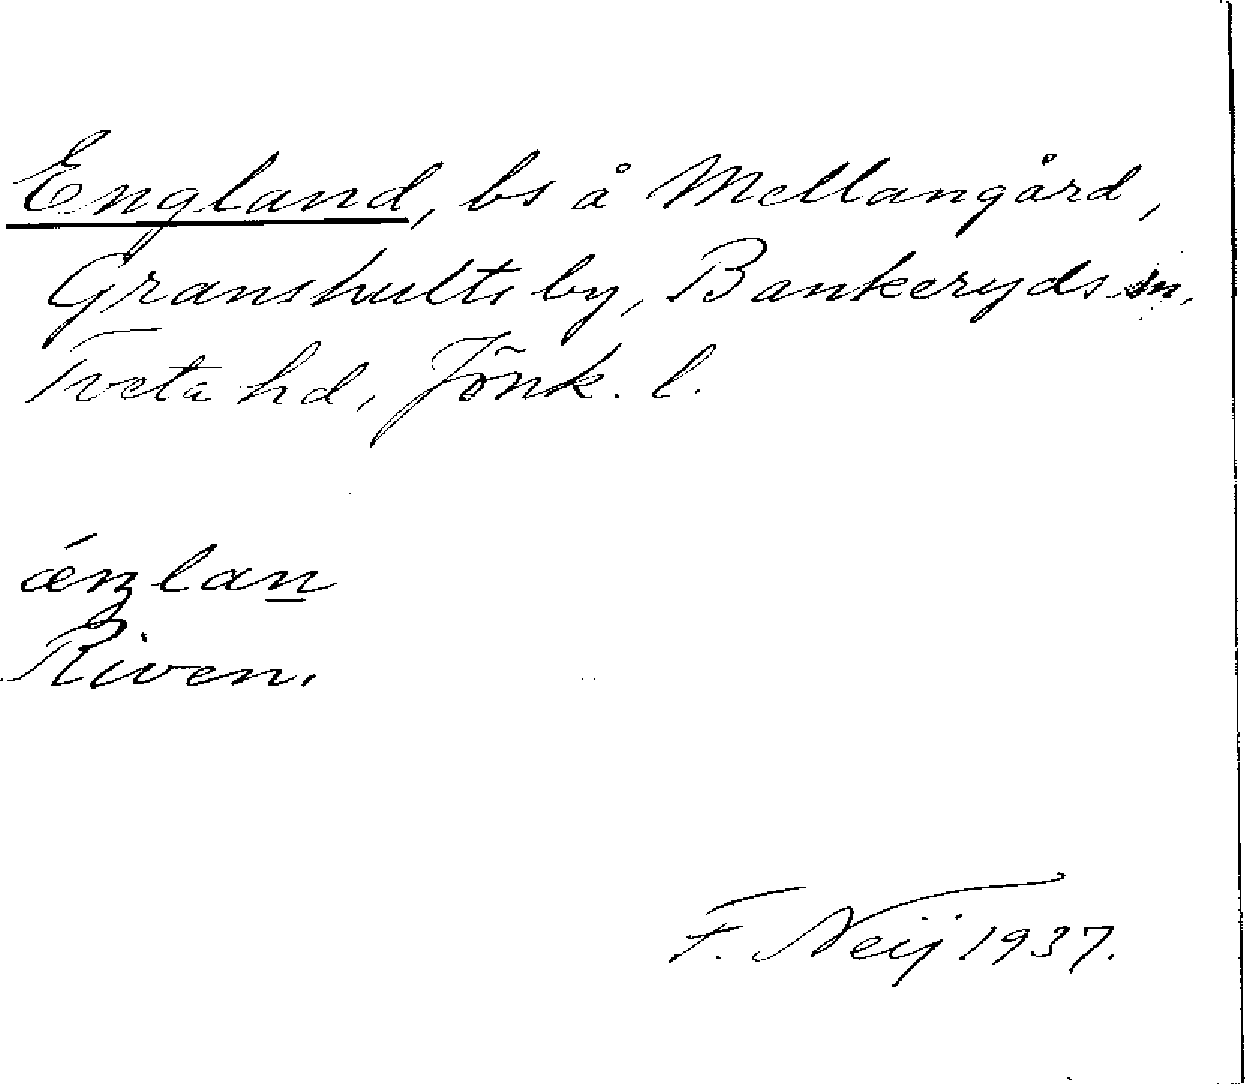 England, bs å Mellangård,
Granshults by, Bankeryds sn,
Tveta hd, Jönk. l.
ǽŋlan̲
Riven.
F. Neij 1937.